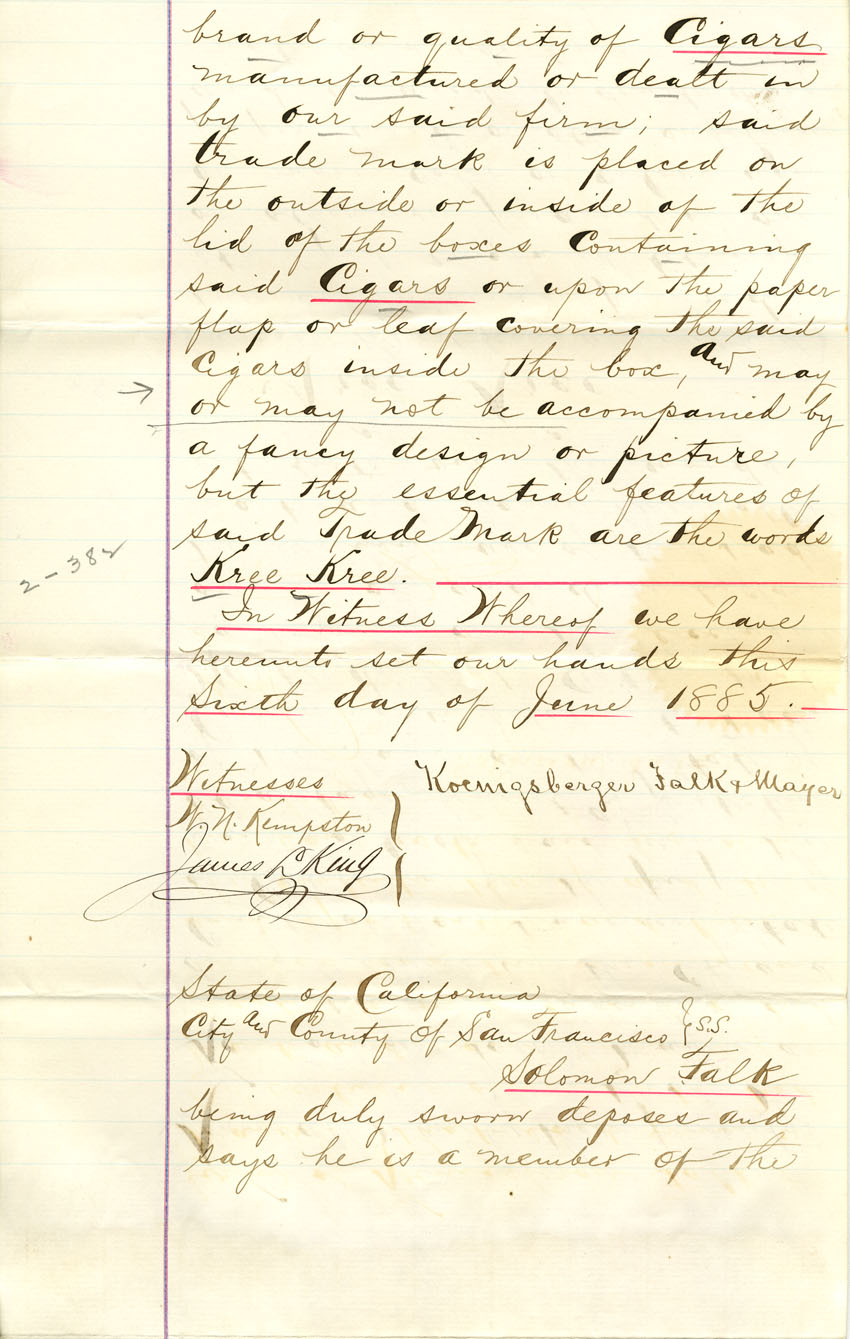 brand or quality of Cigars
manufactured or dealt in
by our said firm; said
trade mark is placed on
the outside or inside of the
lid of the boxes Containing
said Cigars or upon the paper
flap or leaf covering the said
Cigars inside the box, and may
or may not be accompanied by
a fancy design or picture,
but the essential features of
said Trade Mark are the words
2-382
Kree Kree.
In Witness Whereof we have
hereunto set our hands this
Sixth day of June 1885.
Witnesses
Koenigsberger Falk & Mayer
W. N. Kempston
James L King
State of California
City and County of San Francisco } S.S.
Solomon Falk
being duly sworn deposes and
says he is a member of the